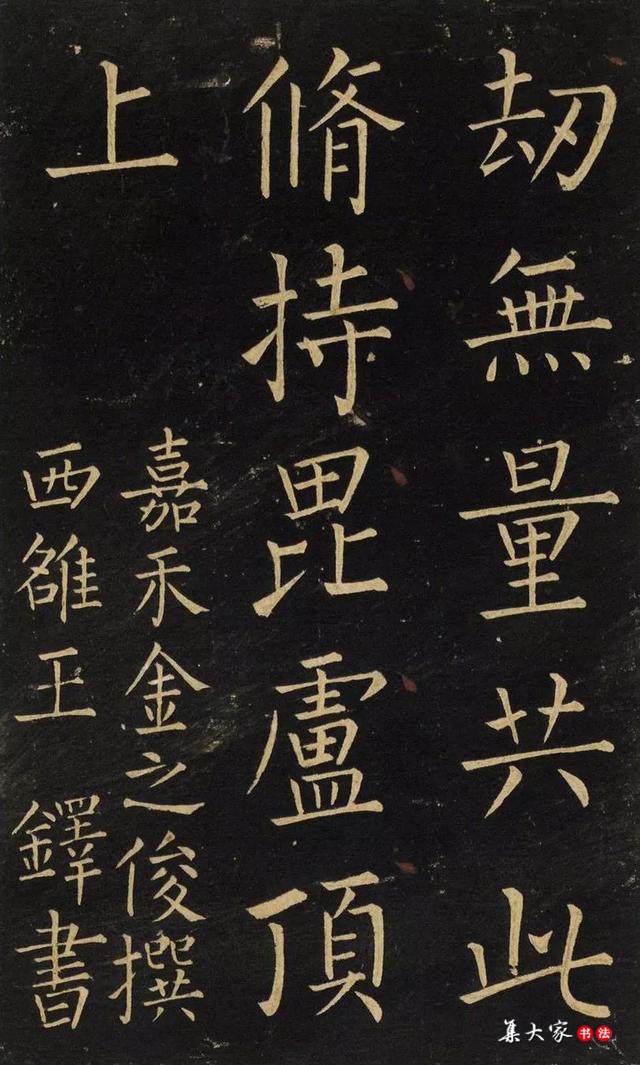 劫無量共此
脩持毘盧頂
上
嘉禾金之俊撰
西雒王鐸書
集大家书法